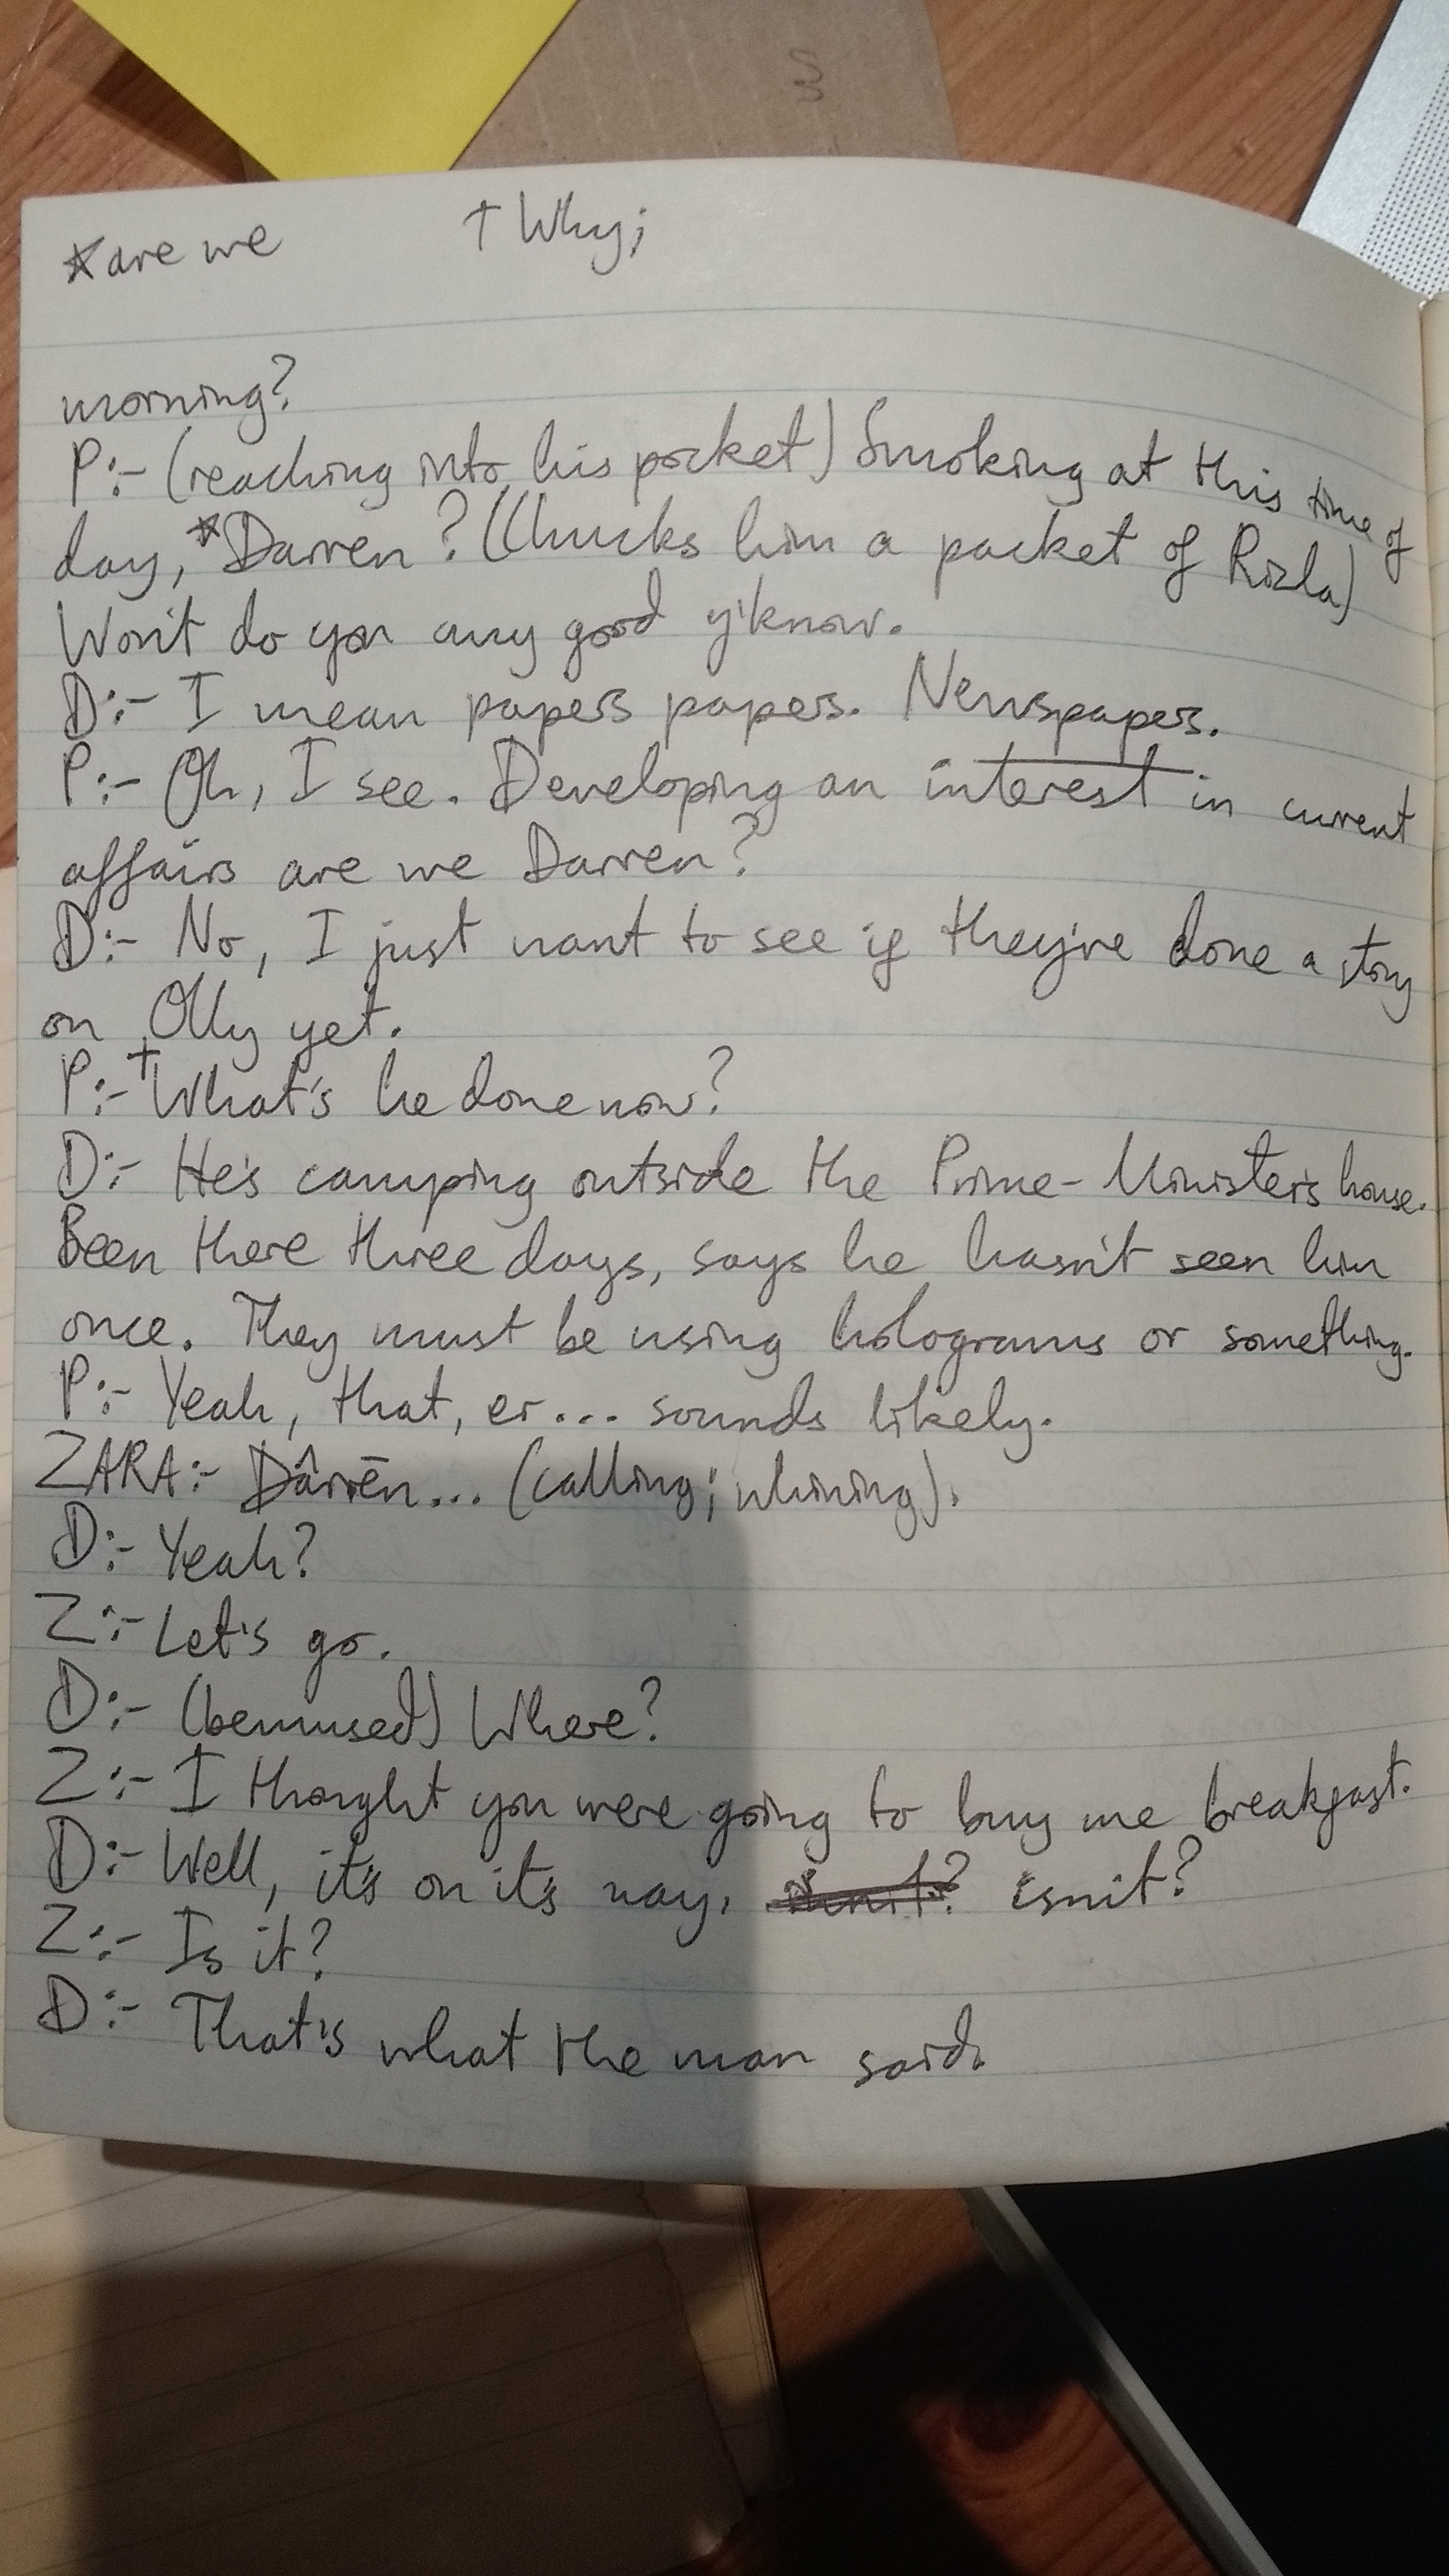 *are we †Why;
morning?
P:- (reaching into his pocket) Smoking at this time of
day, *Darren? (Chucks him a packet of Rizla)
Won't do you any good y'know.
D:- I mean papers papers. Newspapers.
P:- Oh, I see. Developing an interest in current
affairs are we Darren?
D:- No, I just want to see if they've done a story
on Olly yet.
P:- †What's he done now?
D:- He's camping outside the Prime-Minister's house.
Been there three days, says he hasn't seen him
once. They must be using holograms or something.
P:- Yeah, that, er... sounds likely.
ZARA:- Dârrēn... (calling; whining).
D:- Yeah?
Z:- Let's go.
D:- (bemused) Where?
Z:- I thought you were going to buy me breakfast.
D:- Well, it's on it's way, isn't?
Z:- Is it?
D:- That's what the man said.